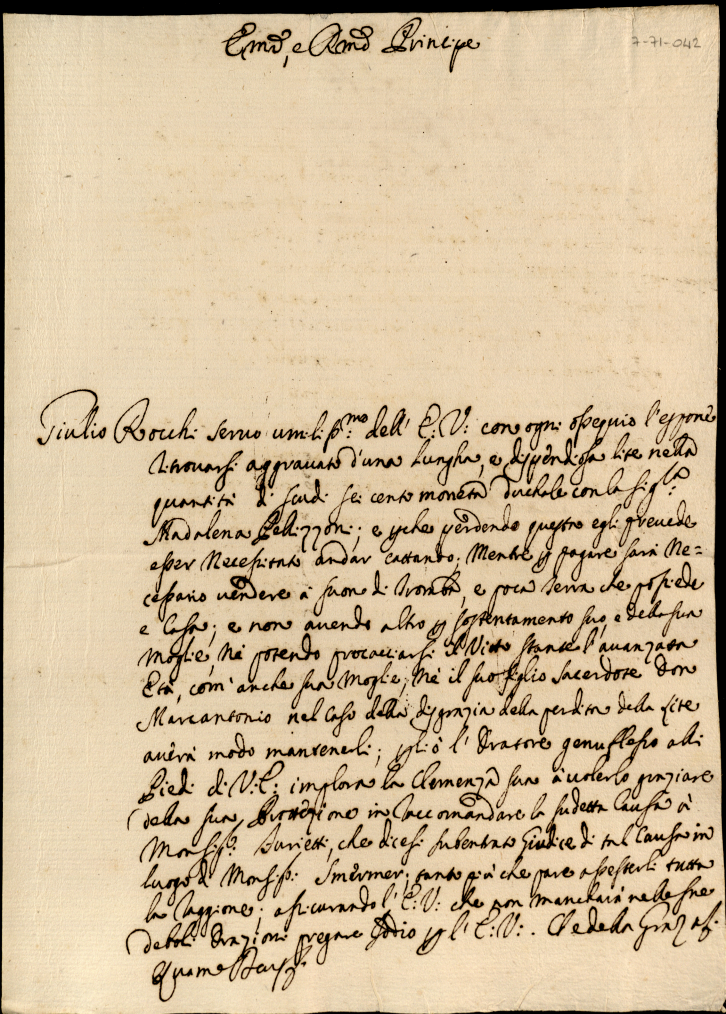 7-71-042
Em̃o, e Rm̃o Principe
Giulio Rocchi servo umiliss.mo dell' E: V: con ogni ossequio l'espone
ritrovarsi aggravato d'una lungha, e dispendiosa lite nella
quantità di scudi sei cento moneta duchale con la Sig.ra
Madalena Pelizzoni; e che perdendo questa egli prevede
esser Necessitato andar cattando; Mentre p pagare sarà Ne=
cessario vendere à suono di tromba, e poca terra che possiede
e Casa; e non avendo altro p sostentamento suo, e della sua
Moglie, Nè potendo procacciarsi il Vitto stante l'avanzata
Età, com' anche sua Moglie, Nè il suo figlio Sacerdote Don
Marcantonio nel caso della disgrazia della perdita della lite
averà modo mantenerli; p ciò l'Oratore genuflesso alli
Piedi di V: E: implora la Clemenza sua à volerlo graziare
della sua Protezione in raccomandare la sudetta Causa à
Monsig.r Varietti, che dicesi subentrato Giudice di tal Causa in
luogo di Monsig.r Smermer; tanto più che pare assisterli tutta
la raggione; assicurando l'E: V: che non mancharà nelle sue
deboli Orazioni pregare Iddio p l'E: V:. Che della Graz.a &.
Quam Deus &.